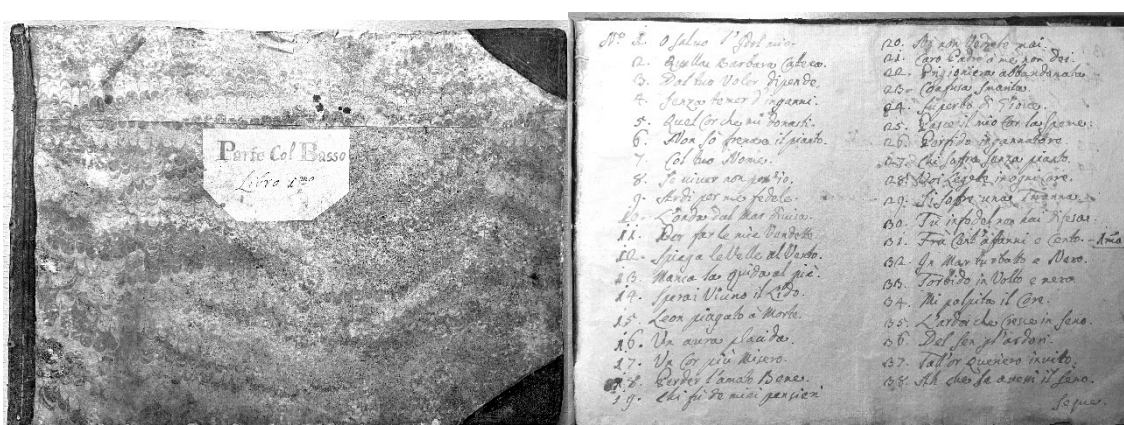 Parte Col Basso
Libro 1mo
No. 1. O salvo l'Idol mio.
2. Quella Barbara Catena
3. Dal tuo Voler dipende
4. Senza temer d'inganni.
5. Quel Cor che mi donasti.
6. Non so frenare il pianto.
7. Col tuo Nome.
8. Se viver non poss'io.
9. Ardi per me fedele.
10. L'onda dal Mar divisa.
11. Per far le mie Vendette
12. Spiega le Velle al Vento.
13. Manca la guida al piè.
14. Sperai Vicino il Lido.
15. Leon piagato à Morte.
16. Un aura placida.
17. Un Cor più Misero.
18. Perder l'amato Bene.
19. Chi fù de miei pensieri
20. Ah non Vedeste mai.
21. Caro Padre a me non dei.
22. Prigioniera abbandonata
23. Confusa smarita
24. Superbo di
25. Nasce il mio Cor la speme.
26. Perfido ingannatore.
27. Chi soffre senza pianto.
28. Voi Leggete in ogni core.
29. Si soffre una Tiranna
30. Tu infedel non hai difesa.
31. Frà Cent'affanni e Cento.
32. In Mar turbato e Nero.
33. Torbido in Volto e nero
34. Mi palpita il Core.
35. L'ardor che Cresce in seno.
36. Del sen gl'ardori.
37. Tal'or gueriero invito.
38. Ah che se avessi il seno.
Segue.